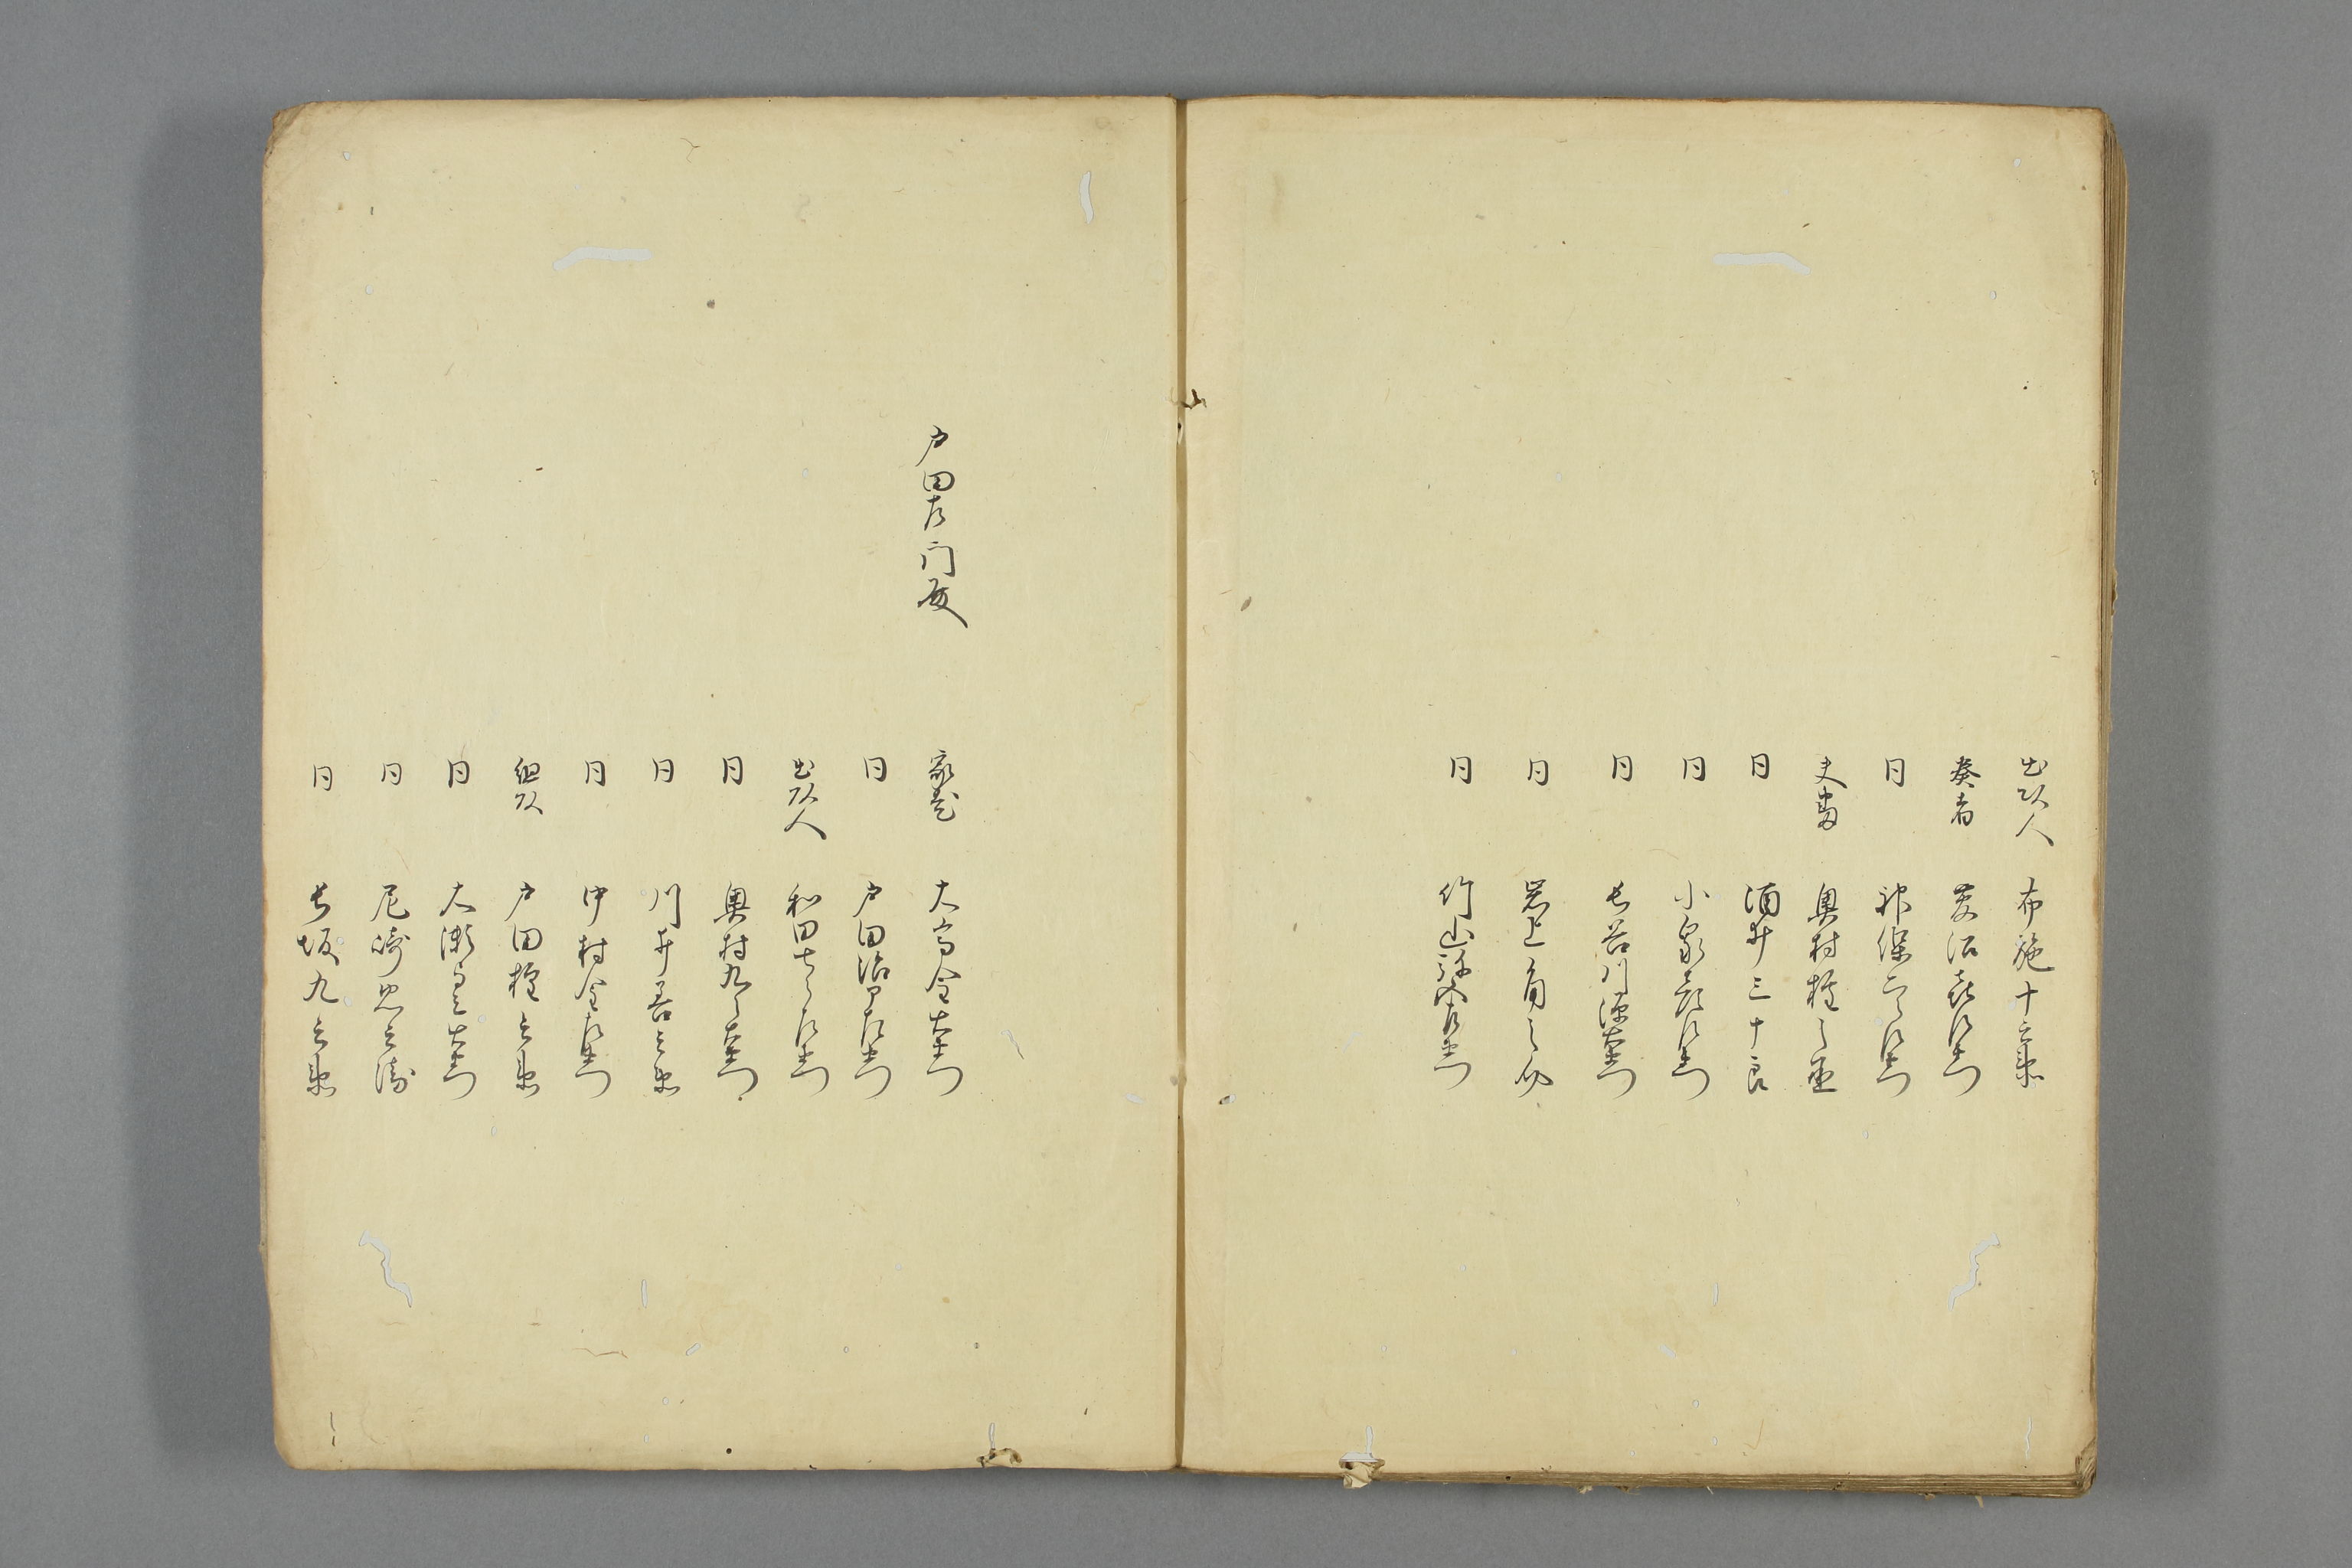 出頭人 布施十兵衛
奏者 喜左衛門
同 神保 左衛門
奥村権之丞
同 酒井三十良
同 小泉 左衛門
同 長谷川源右衛門
同 岩上角之助
同 竹山 左衛門
戸田左門殿
家老 大高金右衛門
同 戸田治郎左衛門
出頭人 和田 左衛門
同 奥村九 右衛門
同 川井善兵衛
同 中村金左衛門
組頭 戸田権兵衛
同 大瀬 右衛門
同 尼崎忠兵衛
同 長坂九兵衛